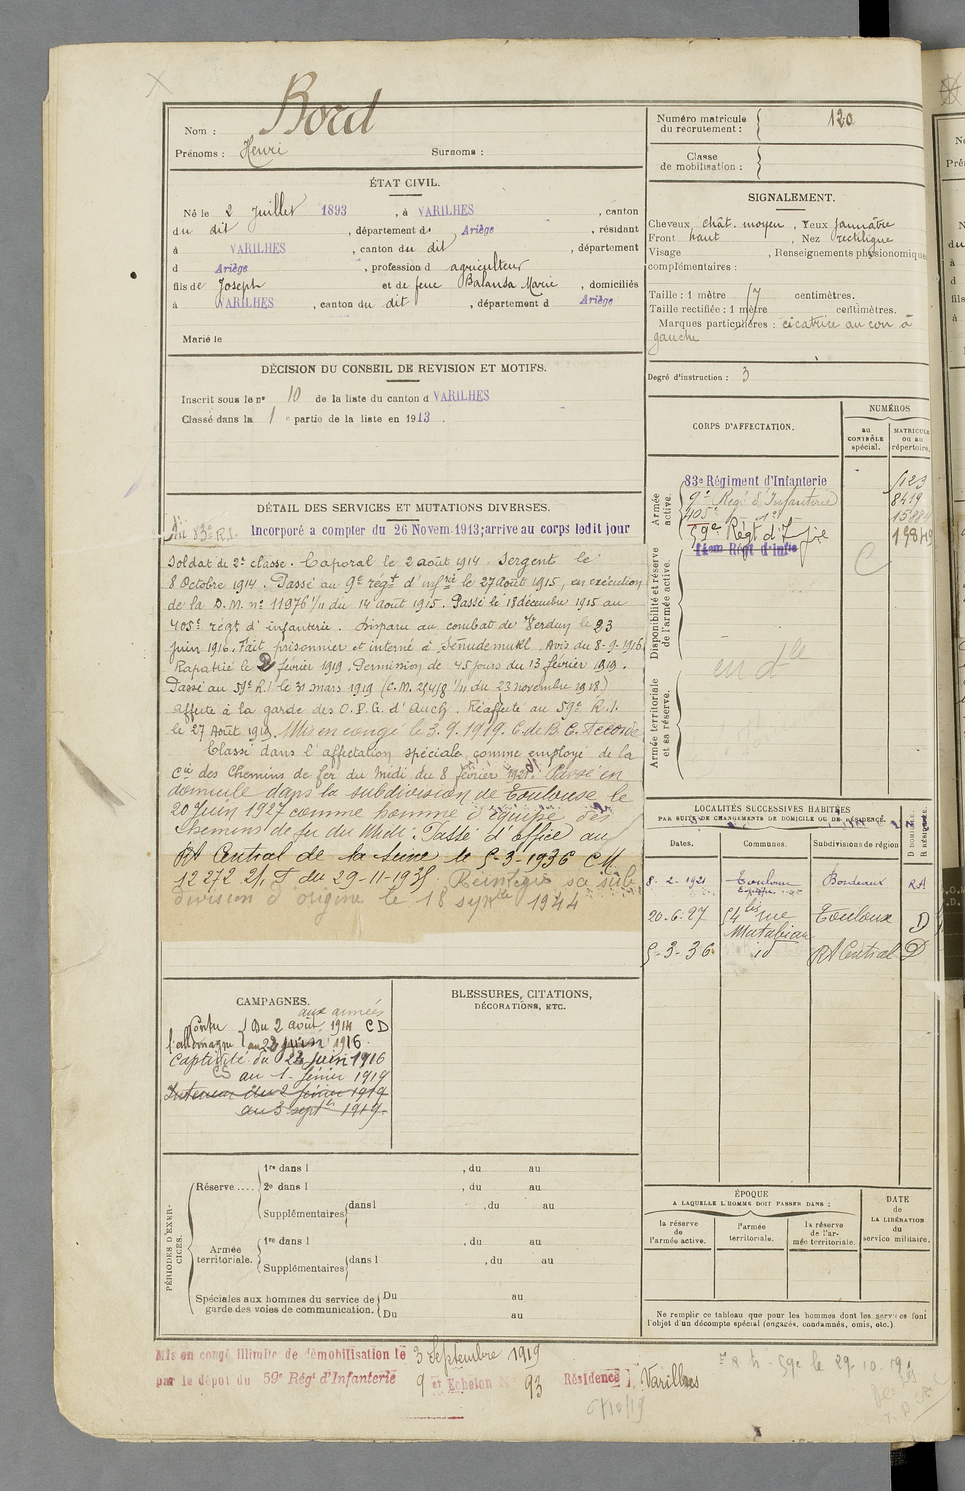 Nom : Bord
Prénoms : Henri Surnoms :
Numéro matricule du recrutement : 120
Classe de mobilisation :
ÉTAT CIVIL.
Né le 2 Juillet 1893, à VARILHES, canton
du dit, département de Ariège, résidant
à VARILHES, canton du dit, département
d Ariège, profession d agriculteur
fils de Joseph et de feue Balansa Marie, domiciliés
à VARILHES, canton du dit, département d Ariège
Marié le
SIGNALEMENT.
Cheveux chât. moyen, Yeux jaunâtre
Front haut, Nez rectiligne
Visage , Renseignements physionomiques
complémentaires :
Taille : 1 mètre 57 centimètres.
Taille rectifiée : 1 mètre centimètres.
Marques particulières : cicatrice au cou à
gauche
Degré d'instruction : 3
DÉCISION DU CONSEIL DE REVISION ET MOTIFS.
Inscrit sous le nº 10 de la liste du canton d VARILHES
Classé dans la 1 e partie de la liste en 1913.
CORPS D'AFFECTATION.
NUMÉROS
au CONTRÔLE spécial.
MATRICULE ou au répertoire.
Armée active.
83e Régiment d'Infanterie 5123
9e Régt d'Infanterie 8419
405e
59e Régt d'Infie
14em Régt d'Infie
Disponibilité et réserve de l'armée active.
C
en dle
Armée territoriale et sa réserve.
DÉTAIL DES SERVICES ET MUTATIONS DIVERSES.
Au 83e R.I. Incorporé a compter du 26 Novem. 1913; arrive au corps ledit jour
Soldat de 2e classe. Caporal le 2 août 1914 Sergent le
8 Octobre 1914. Passé au 9e régt d'infrie le 27 août 1915, en exécution
de la D.M. nº 11976 1/11 du 14 août 1915. Passé le 18 décembre 1915 au
405e régt d'infanterie. Disparu au combat de Verdun le 23
juin 1916. Fait prisonnier et interné à Avis du 8-9-1916
Rapatrié le 2 février 1919. Permission de 45 jours du 13 février 1919.
Passé au 59e R.I. le 31 mars 1919 (C.M. 25458 1/11 du 23 novembre 1918.)
affecté à la garde des O.P.G. d'Auch. Réaffecté au 59e R.I.
le 27 Août 1919. Mis en congé le 3.9.1919. C de B.C. Accordé
Classé dans l'affectation spéciale, comme employé de la
Cie des Chemins de fer du Midi du 8 février 1921. Passé en
domicile dans la subdivision de Toulouse le
20 Juin 1927 comme homme d'équipe des
Chemins de fer du Midi. Passé d'office au
RA Central de la Seine le 5-3-1936 CM
12272 2/1 T du 29-11-1935. Réintégré sa sub
division d'origine le 18 1944
LOCALITÉS SUCCESSIVES HABITÉES
PAR SUITE DE CHANGEMENTS DE DOMICILE OU DE RÉSIDENCE.
Dates. Communes. Subdivisions de région D DOMICILE. R RÉSIDENCE.
8-2-1921 Toulouse Bordeaux RA
20-6-27 54 bis rue Matabiau Toulouse D
5-3-36 id RA Central D
CAMPAGNES.
aux armées
Contre l'allemagne Du 2 août 1914 CD
au 22 juin 1916.
Captivité du 23 Juin 1916
CS au 1- février 1919
Interieur du 2 février 1919
au 3 septbre 1919.
BLESSURES, CITATIONS,
DÉCORATIONS, ETC.
PÉRIODES D'EXERCICES.
Réserve .... 1re dans l , du au
2e dans l , du au
Supplémentaires dans l , du au
Armée territoriale. 1re dans l , du au
Supplémentaires dans l , du au
Spéciales aux hommes du service de garde des voies de communication. Du au
Du au
ÉPOQUE
A LAQUELLE L'HOMME DOIT PASSER DANS :
la réserve de l'armée active.
l'armée territoriale.
la réserve de l'armée territoriale.
DATE de LA LIBÉRATION du service militaire.
Ne remplir ce tableau que pour les hommes dont les services font
l'objet d'un décompte spécial (engagés, condamnés, omis, etc.).
Mis en congé illimité de démobilisation le 3 Septembre 1919
par le dépôt du 59e Régt d'Infanterie 9 et Echelon Nº 93 Résidence Varilhes
6/10/19